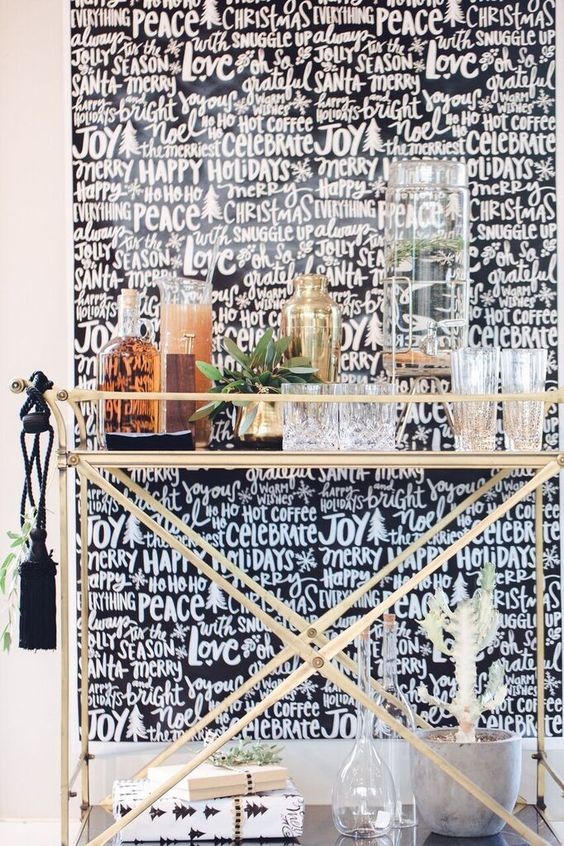 EVERYTHING PEACE CHRISTMAS EVERYTHING PEACE CHRISTMAS
always with SNUGGLE UP always with SNUGGLE UP
JOLLY 'tis the SEASON Love oh so JOLLY 'tis the SEASON Love oh so
SANTA MERRY grateful SANTA MERRY grateful
happy HOLIDAYS and bright Joyous & WARM wishes happy HOLIDAYS and bright Joyous & WARM wishes
JOY Noel HO HO HO HOT COFFEE JOY Noel HO HO HO HOT COFFEE
the merriest CELEBRATE the merriest CELEBRATE
MERRY HAPPY HOLIDAYS MERRY HOLIDAYS
Happy HO HO HO merry Happy HO HO HO
EVERYTHING PEACE CHRISTMAS EVERYTHING PEACE CHRISTMAS
always with SNUGGLE UP always SNUGGLE UP
JOLLY 'tis the SEASON Love oh so JOLLY oh so
SANTA MERRY grateful SANTA grateful
happy HOLIDAYS WARM wishes WARM wishes
JOY CELEBRATE
SANTA MERRY SANTA MERRY grateful
Joyous & WARM wishes happy HOLIDAYS and bright Joyous
JOY HO HO HO HOT COFFEE JOY Noel HOT COFFEE
the merriest CELEBRATE the merriest CELEBRATE
MERRY HAPPY HOLIDAYS MERRY HAPPY HOLIDAYS
Happy HO HO HO merry Happy HO HO HO
EVERYTHING PEACE CHRISTMAS EVERYTHING PEACE
always with SNUGGLE UP always with
JOLLY 'tis the SEASON Love oh so JOLLY SEASON Love
SANTA MERRY grateful SANTA
happy HOLIDAYS and bright Joyous & WARM wishes
JOY Noel HOT COFFEE JOY
the merriest CELEBRATE CELEBRATE